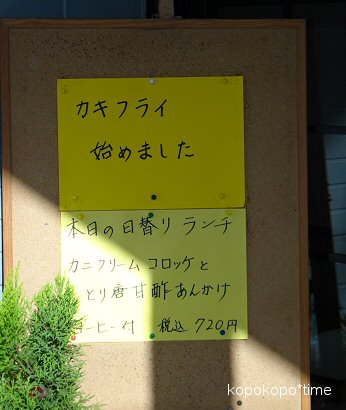 カキフライ
始めました
本日の日替りランチ
カニクリームコロッケと
とり唐甘酢あんかけ
コーヒー付 税込720円
kopokopo*time